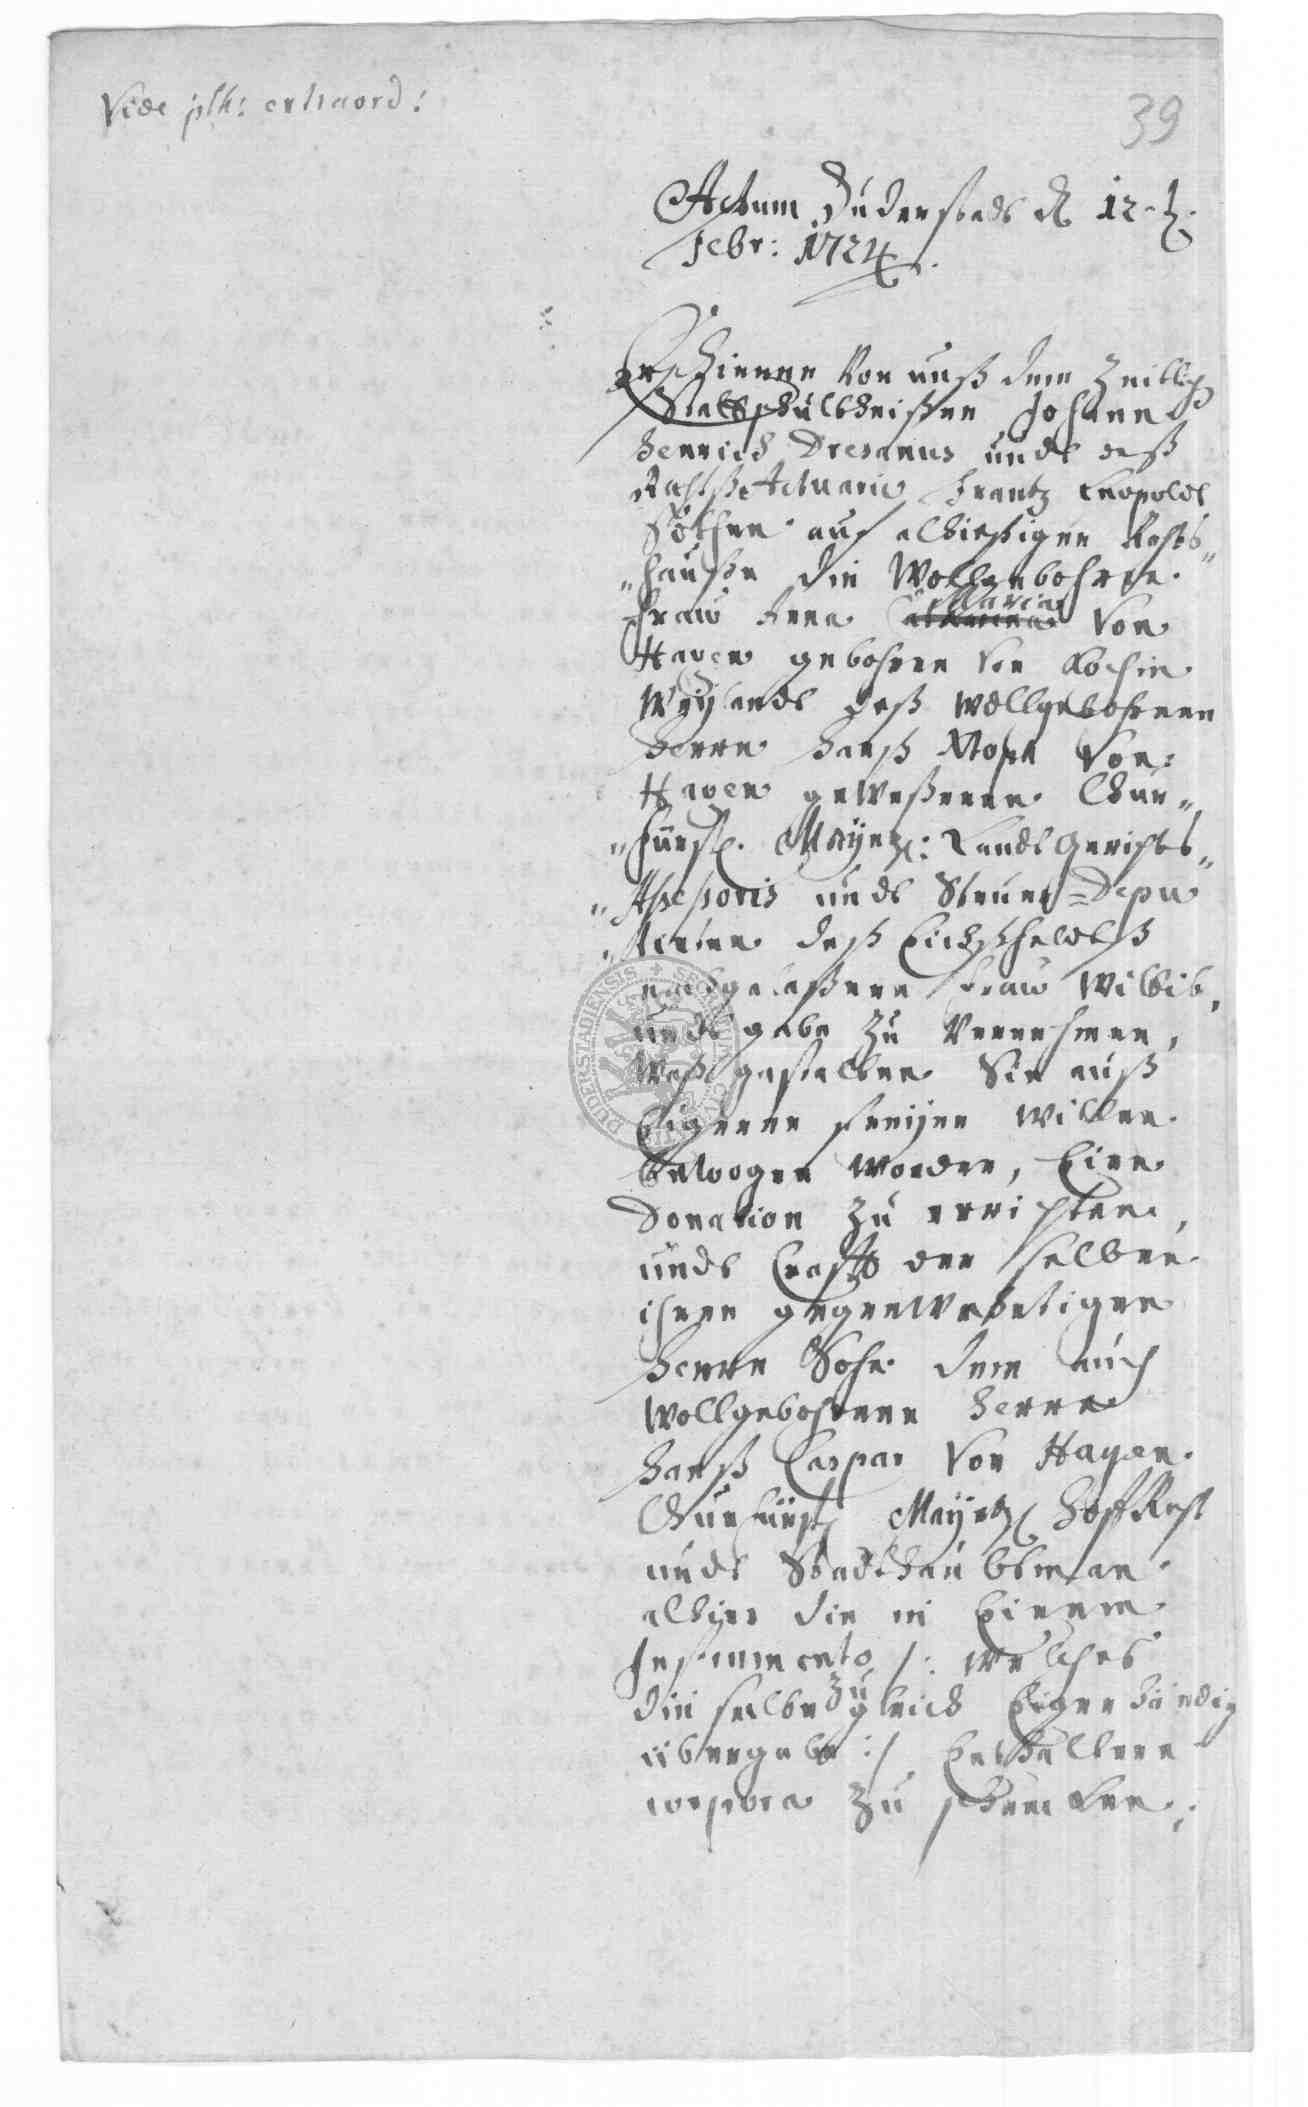 Vide pth: extraord:
39
Actum Duderstadt d. 12.t.
Febr: 1724.
Erschienen Vor unß dem Zeitlig
Stattschultheißen Johann
Henrich Dresanus undt deß
Rahtß Actuario Frantz Leopoldt
Söthen auf alhießigen Rahts„
„hauße die Wollgebohrne
Fraw Anna Catharina Maria Von
Hagen gebohrne Von Kochin
Weylandt deß wollgebohrnen
Herrn Hanß Von
Hagen geweßenen Chur„
„Fürstl. Mayntz: Landtgerichts„
„Assessoris undt Steuer=Depu
„tirten deß Eichßfeldtß
nachgelaßene Fraw Wittib,
undt gabe zu Vernehmen,
Waßgestalten Sie auß
Eigenen freyen willen
bewogen worden, Eine
Donation zu errichten,
undt Crafft der selben
ihren gegenwehrtigen
Herrn Sohn dem auch
Wollgebohrnen Herrn
Hanß Caspar Von Hagen
Churfürstl Mayntz HoffRaht
undt Stadthaubtman
alhier die in Einem
Instrumento /: welches
die selbe zugleich Eigenhändig
übergabe :/ Enthaltene
corpora zu schencken,
DUDERSTADIENSIS